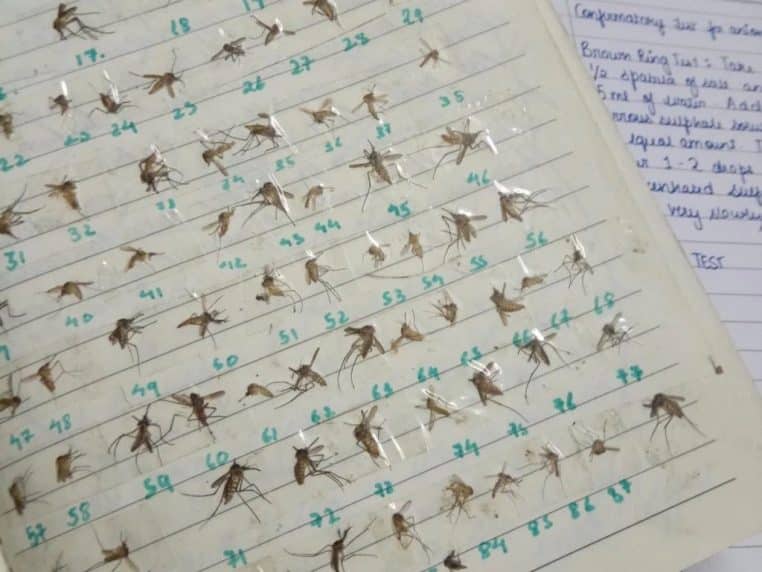 17. 18 19
22 23 24 25 26 27 28 29
31 32 33 34 35 36 37 35
40 41 42 43 44 45 46
47 48 49 50 51 52 53 54 55 56
57 58 59 60 61 62 63 64 65 66 67 68
71 72 73 74 75 76 77
84 85 86 87
Confirmatory Test for anion
Brown Ring Test: Take
1/2 spatula of salt an
5 ml of water. Add
rrous sulphate
equal amount.
1-2 drops
very slowly
TEST